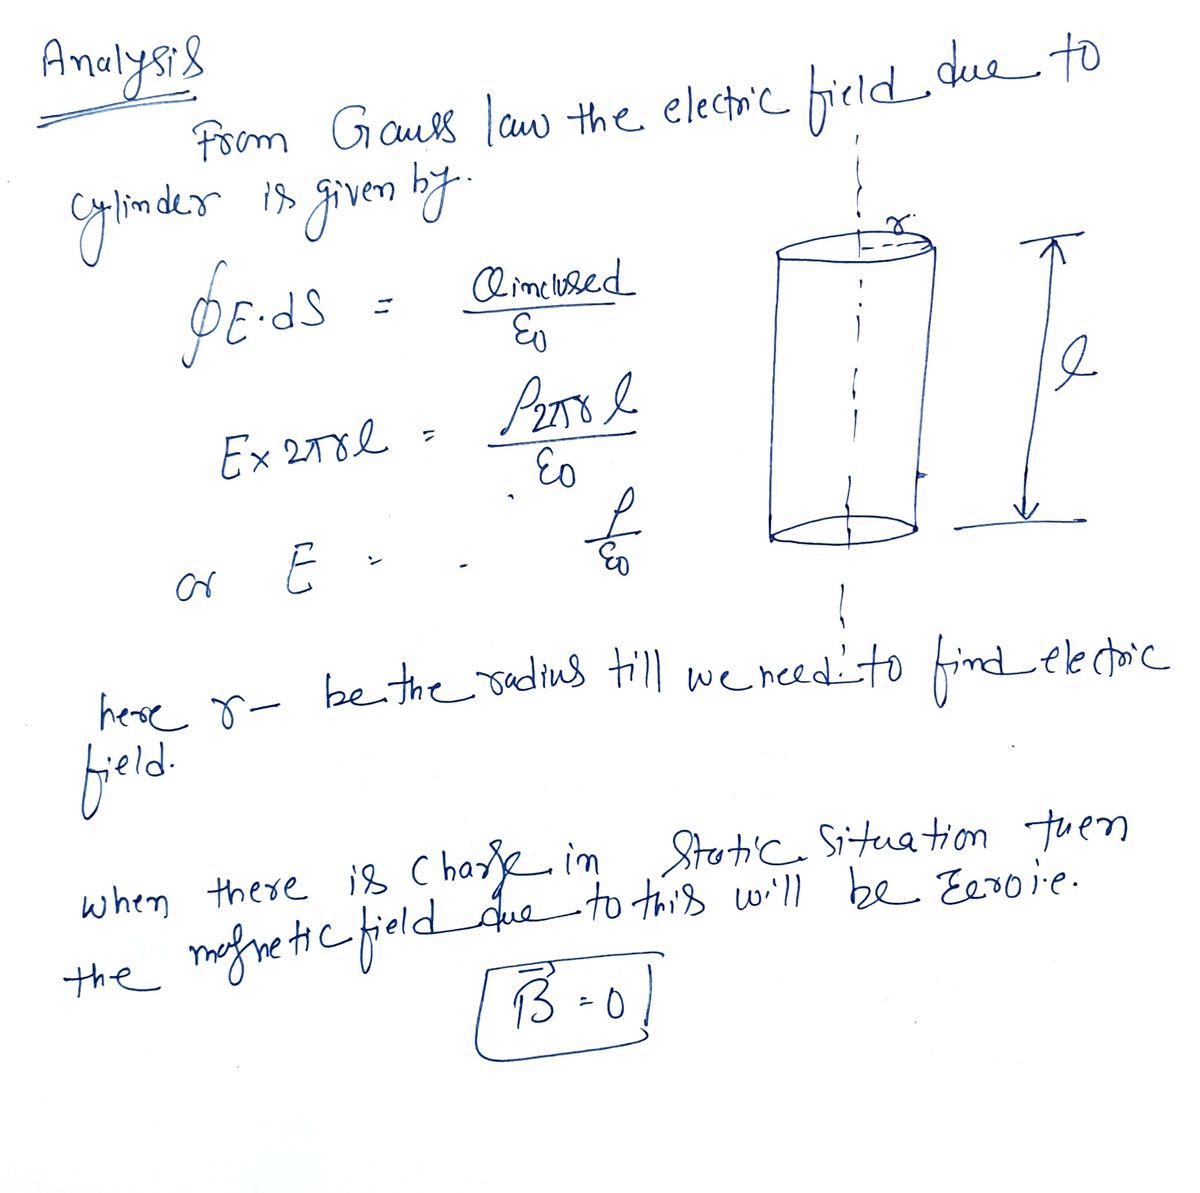 Analysis
From Gauss law the electric field due to
cylinder is given by.
r
∮E·dS = Qinclused / ε0
l
E×2πrl = ρ2πrl / ε0
or E = ρ / ε0
here r– be the radius till we need to find electric
field.
when there is charge in static situation then
the magnetic field due to this will be zero i.e.
B⃗ = 0